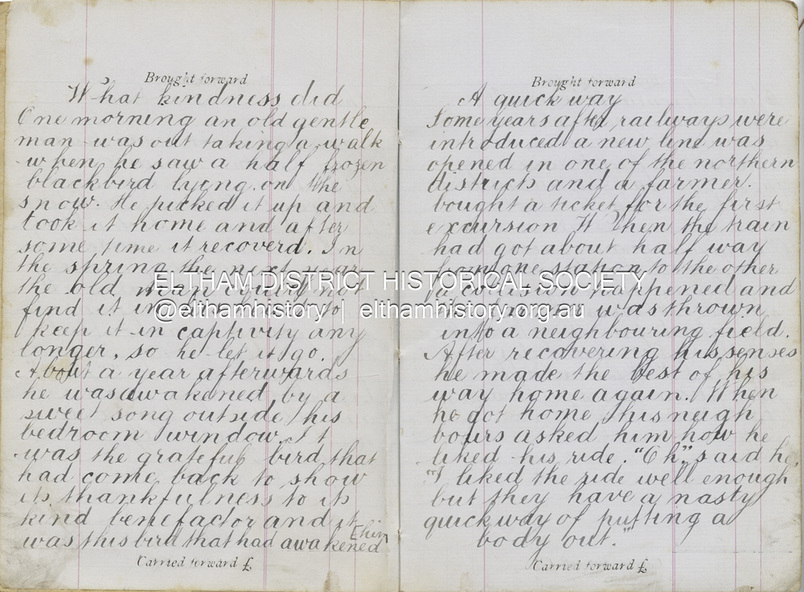 Brought forward
What kindness did
One morning an old gentle
man was out taking a walk
when he saw a half frozen
blackbird lyong on the
snow. He picked it up and
took it home and after
some time it recoverd. In
the spring the next year
the old man could not
find it in
keep it in captivity any
longer, so he let it go.
About a year afterwards
he was awakened by a
sweet song outside his
bedroom window. It
was the grateful bird that
had come back to show
its thankfulness to its
kind benefactor and it
was this bird that had awakened him
Carried forward £
Brought forward
A quick way
Some years after railways were
introduced a new line was
opened in one of the northern
districts and a farmer.
bought a ticket for the first
excursion When the train
had got about half way
from one station to the other
a collision happened and
the farmer was thrown
into a neighbouring field.
After recovering his senses
he made the best of his
way home again. When
he got home, his neigh
bours asked him how he
liked his ride. "Oh", said he,
"I liked the ride well enough
but they have a nasty
quick way of putting a
body out."
Carried forward £
ELTHAM DISTRICT HISTORICAL SOCIETY
@elthamhistory | elthamhistory.org.au